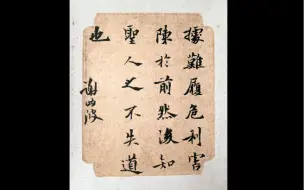 據難履危利害
陳於前然後知
聖人之不失道
也
謝